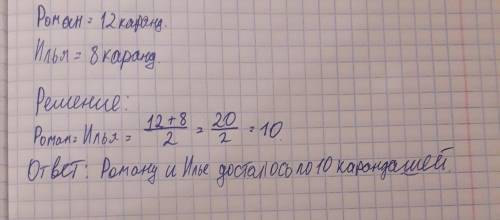 Роман = 12 каранд.
Илья = 8 каранд.
Решение:
Роман = Илья = 12+8/2 = 20/2 = 10.
Ответ: Роману и Илье досталось по 10 карандашей.